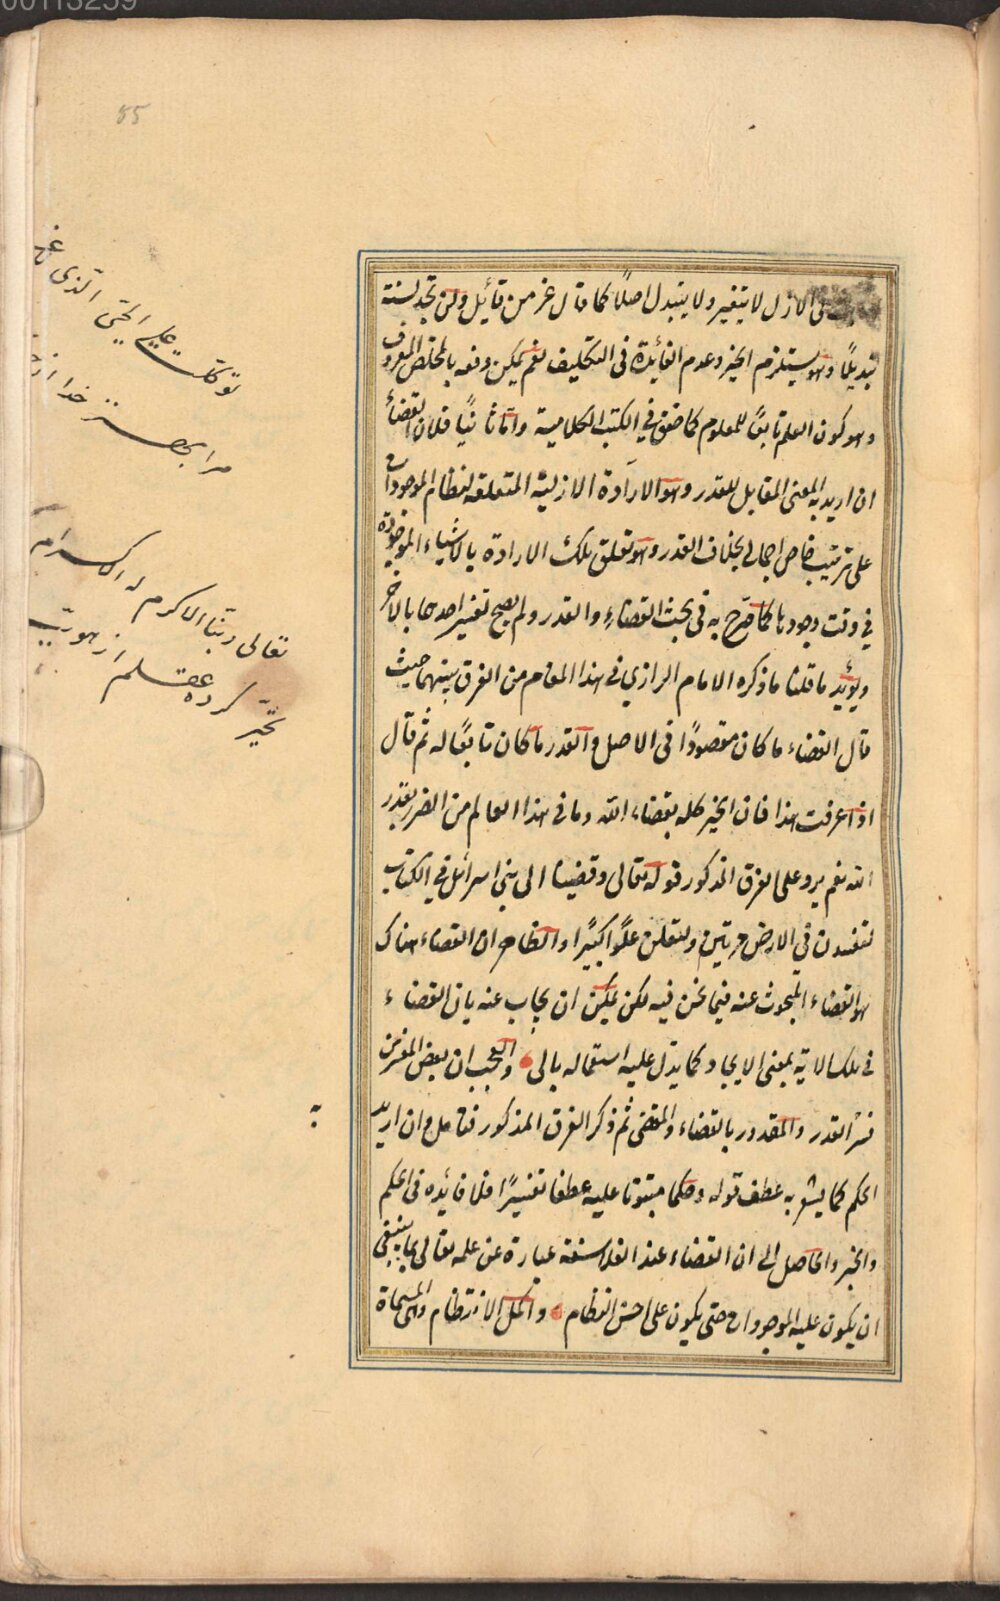 00113259
85
فى الازل لا يتغير ولا يتبدل اصلاً كما قال عز من قائل ولن تجد لسنة
تبديلاً وهو يستلزم الجبر وعدم الفائدة فى التكليف نعم يمكن دفعه بالمخلص المعروف
وهو كون العلم تابعًا للمعلوم كما حقق فى الكتب الكلامية واما ثانيًا فلان القضاء
ان اريد به المعنى المقابل للقدر وهو الارادة الازلية المتعلقة لنظام الموجودات
على ترتيب خاص اجمالى بخلاف القدر وهو تعلق تلك الارادة بالاشياء الموجودة
فى وقت وجودها كما صرح به فى بحث القضاء والقدر ولم يصح تفسير احدهما بالاخر
ويؤيد ما قلنا ما ذكره الامام الرازى فى هذا المقام من الفرق بينهما حيث
قال القضاء ما كان مقصودًا فى الاصل والقدر ما كان تابعًا له ثم قال
اذا عرفت هذا فان الخير كله بقضاء الله وما فى هذا العالم من الضر بقدر
الله نعم يرد على الفرق المذكور قوله تعالى وقضينا الى بنى اسرائل فى الكتاب
لتفسدن فى الارض مرتين ولتعلن علوًا كبيرًا والظاهر ان القضاء هناك
هو القضاء المبحوث عنه فيما نحن فيه لكن يمكن ان يجاب عنه بان القضاء
فى تلك الاية بمعنى الايجاد كما يدل عليه استعماله بالى والعجب ان بعض المفسرين
فسر القدر والمقدور بالقضاء والمقضى ثم ذكر الفرق المذكور فتامل وان اريد
به
الحكم كما يشعر به عطف قوله وحكما مبتوتا عليه عطفا تفسيرًا فلا فائده فى الحكم
والخبر والحاصل الى ان القضاء عند الفلاسفة عبارة عن علمه تعالى بما ينبغى
ان يكون عليه الموجودات حتى يكون على احسن النظام واكمل الانتظام والمسماة
توكلت على الحى الذى
مرا بهتر خدا از
تعالى ربنا الاكرم
تحير كرده عقلم از